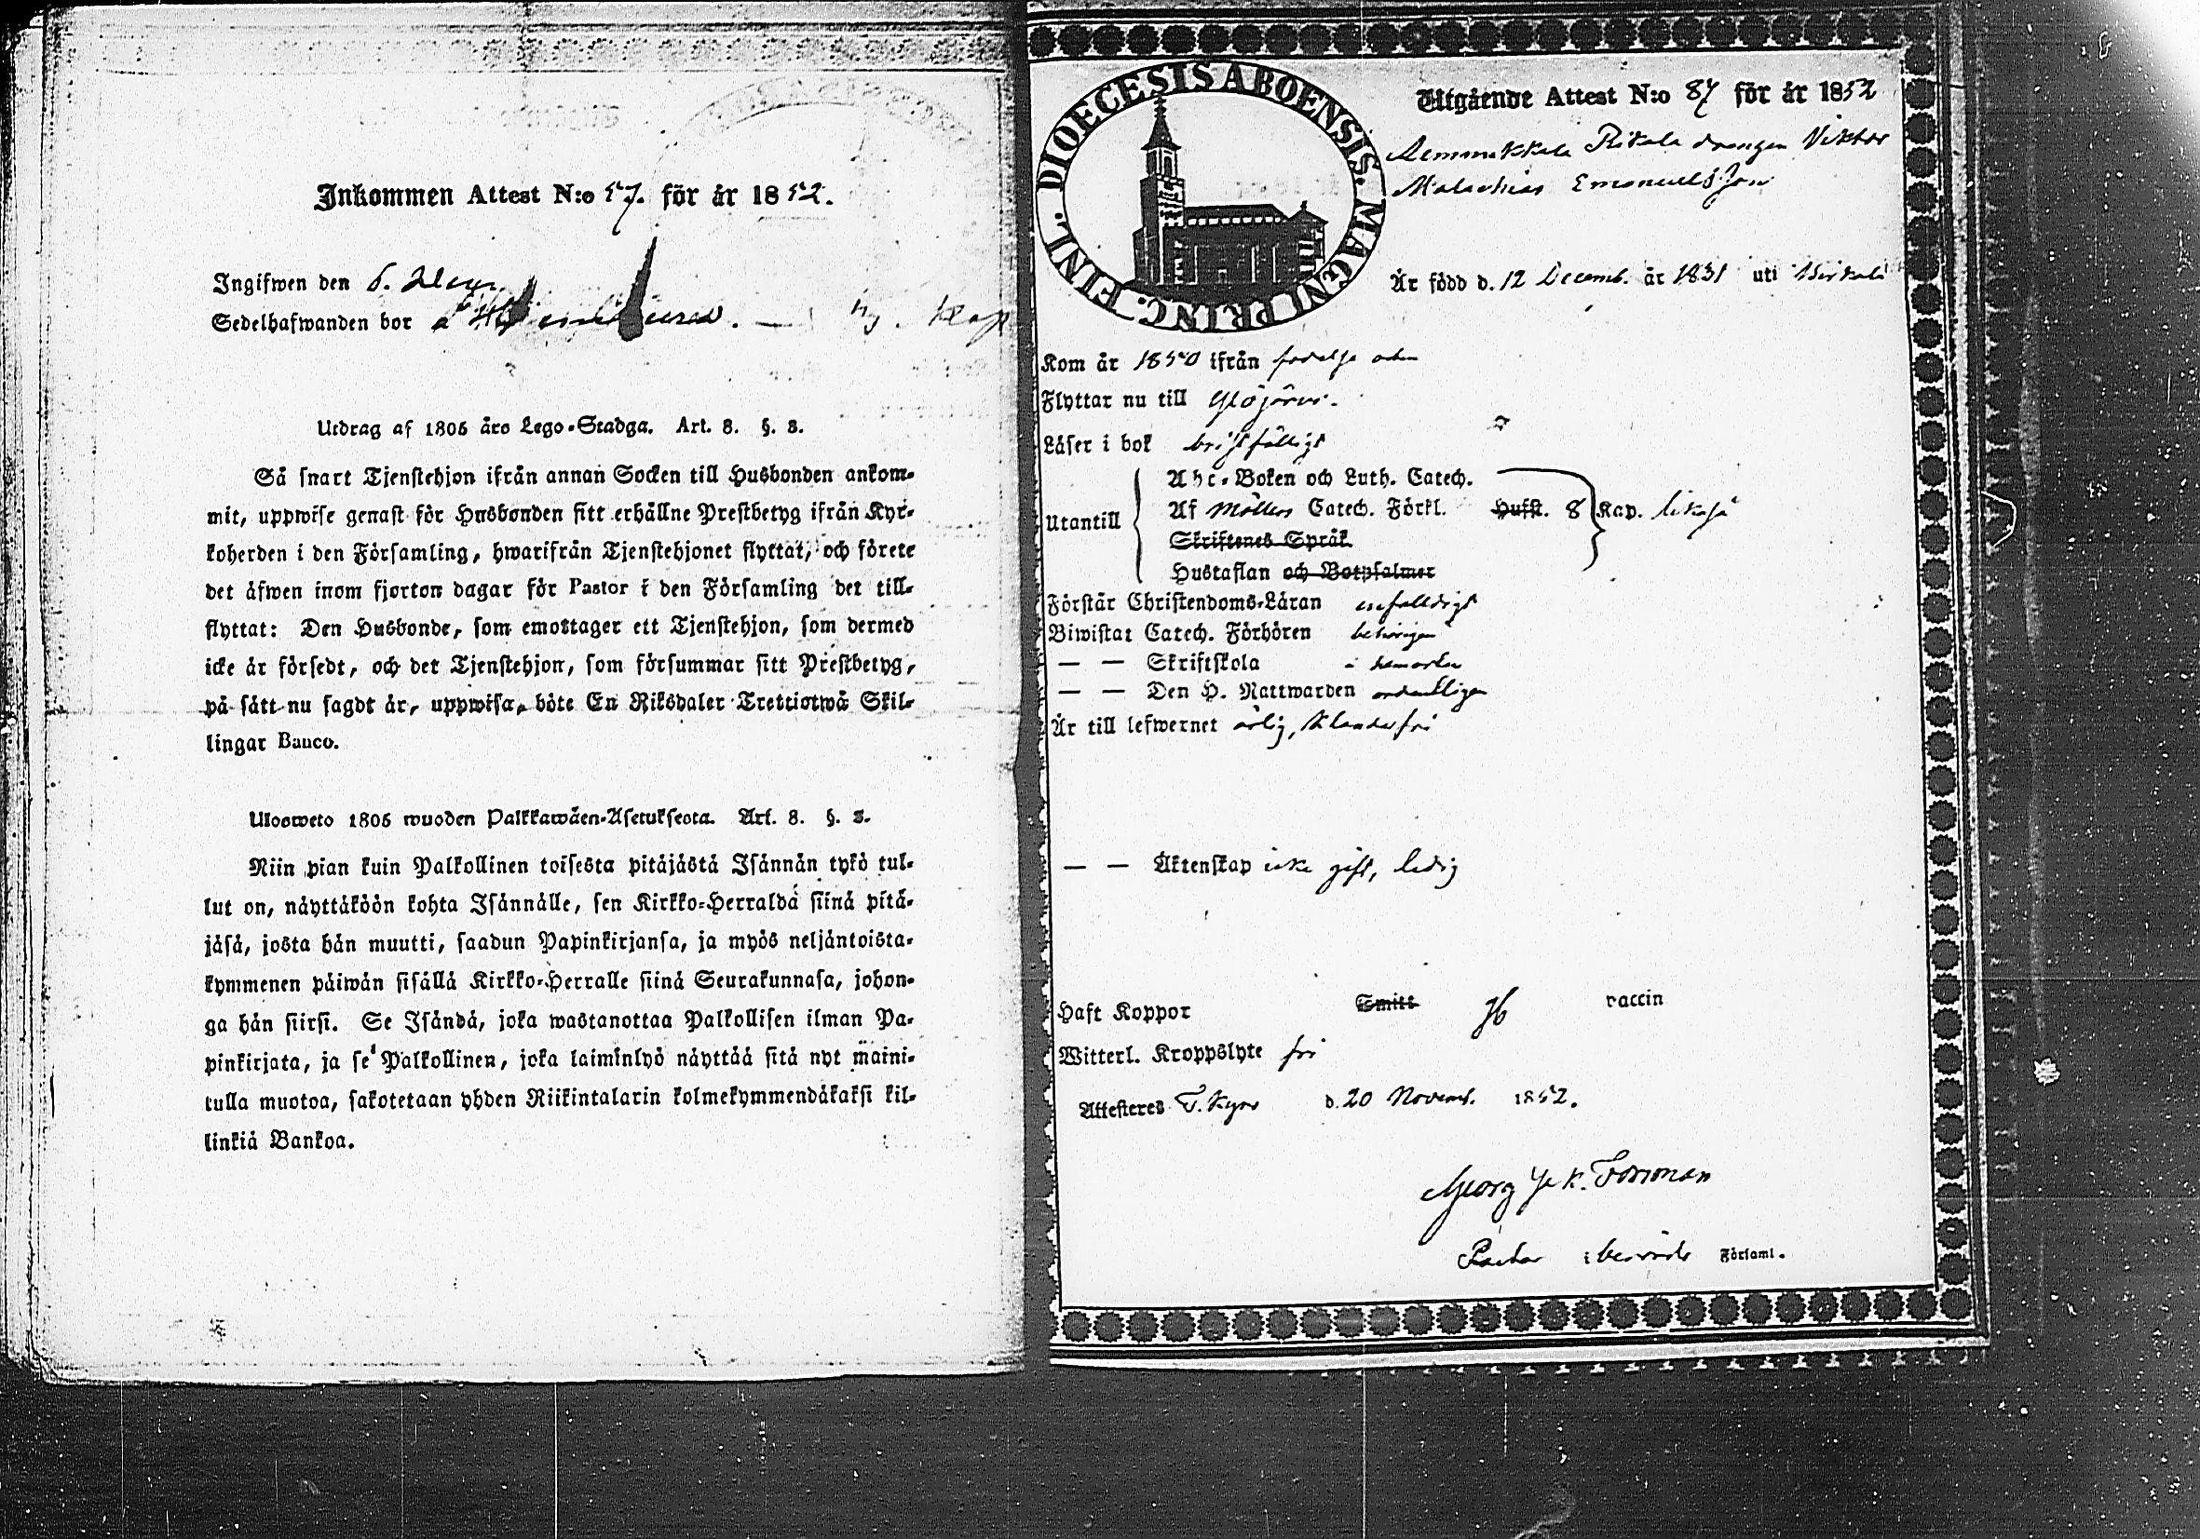 Inkommen Attest N:o 57. för år 1852.
Ingifwen den 6.
Sedelhafwanden bor
Utdrag af 1805 års Lego-Stadga. Art. 8. §. 8.
Så snart Tjenstehjon ifrån annan Socken till Husbonden ankom-
mit, uppwise genast för Husbonden sitt erhållne Prestbetyg ifrån Kyr-
koherden i den Församling, hwarifrån Tjenstehjonet flyttat, och förete
det äfwen inom fjorton dagar för Pastor i den Församling det till-
flyttat: Den Husbonde, som emottager ett Tjenstehjon, som dermed
icke är försedt, och det Tjenstehjon, som försummar sitt Prestbetyg,
på sätt nu sagdt är, uppwisa, böte En Riksdaler Trettiotwå Skil-
lingar Banco.
Ulosweto 1805 wuoden Palkkawäen-Asetuksesta. Art. 8. §. 8.
Niin pian kuin Palkollinen toisesta pitäjästä Isännän tykö tul-
lut on, näyttäköön kohta Isännälle, sen Kirkko-Herralda siinä pitä-
jäsä, josta hän muutti, saadun Papinkirjansa, ja myös neljäntoista-
kymmenen päiwän sisällä Kirkko-Herralle siinä Seurakunnasa, johon-
ga hän siirsi. Se Isändä, joka wastanottaa Palkollisen ilman Pa-
pinkirjata, ja se Palkollinen, joka laiminlyö näyttää sitä nyt maini-
tulla muotoa, sakotetaan yhden Riikintalarin kolmekymmendäkaksi kil-
linkiä Bankoa.
DIOECESIS ABOENSIS. MAGNI PRINC. FINL.
Utgående Attest N:o 87 för år 1852
drengen Viktor
Malachias Emanuelsson
Är född d. 12 Decemb. år 1831 uti Birkala
Kom år 1850 ifrån födelse orten
Flyttar nu till Ylöjärvi.
Läser i bok bristfälligt
Utantill
Abc-Boken och Luth. Catech.
Af Möllers Catech. Förkl. Husst. 8 Kap. likaså
Skriftenes Språk
Hustaflan och Botpsalmer
Förstår Christendoms-Läran enfaldigt
Biwistat Catech. Förhören behörigen
— — Skriftskola i hemorten
— — Den H. Nattwarden ordentligen
Är till lefwernet ärlig, klanderfri
— — Äktenskap icke gift, ledig
Haft Koppor Smitt vaccin
Witterl. Kroppslyte fri
Attesteres T. Kyro d. 20 Novemb. 1852.
Georg Forsman
Pastor i berörde Församl.